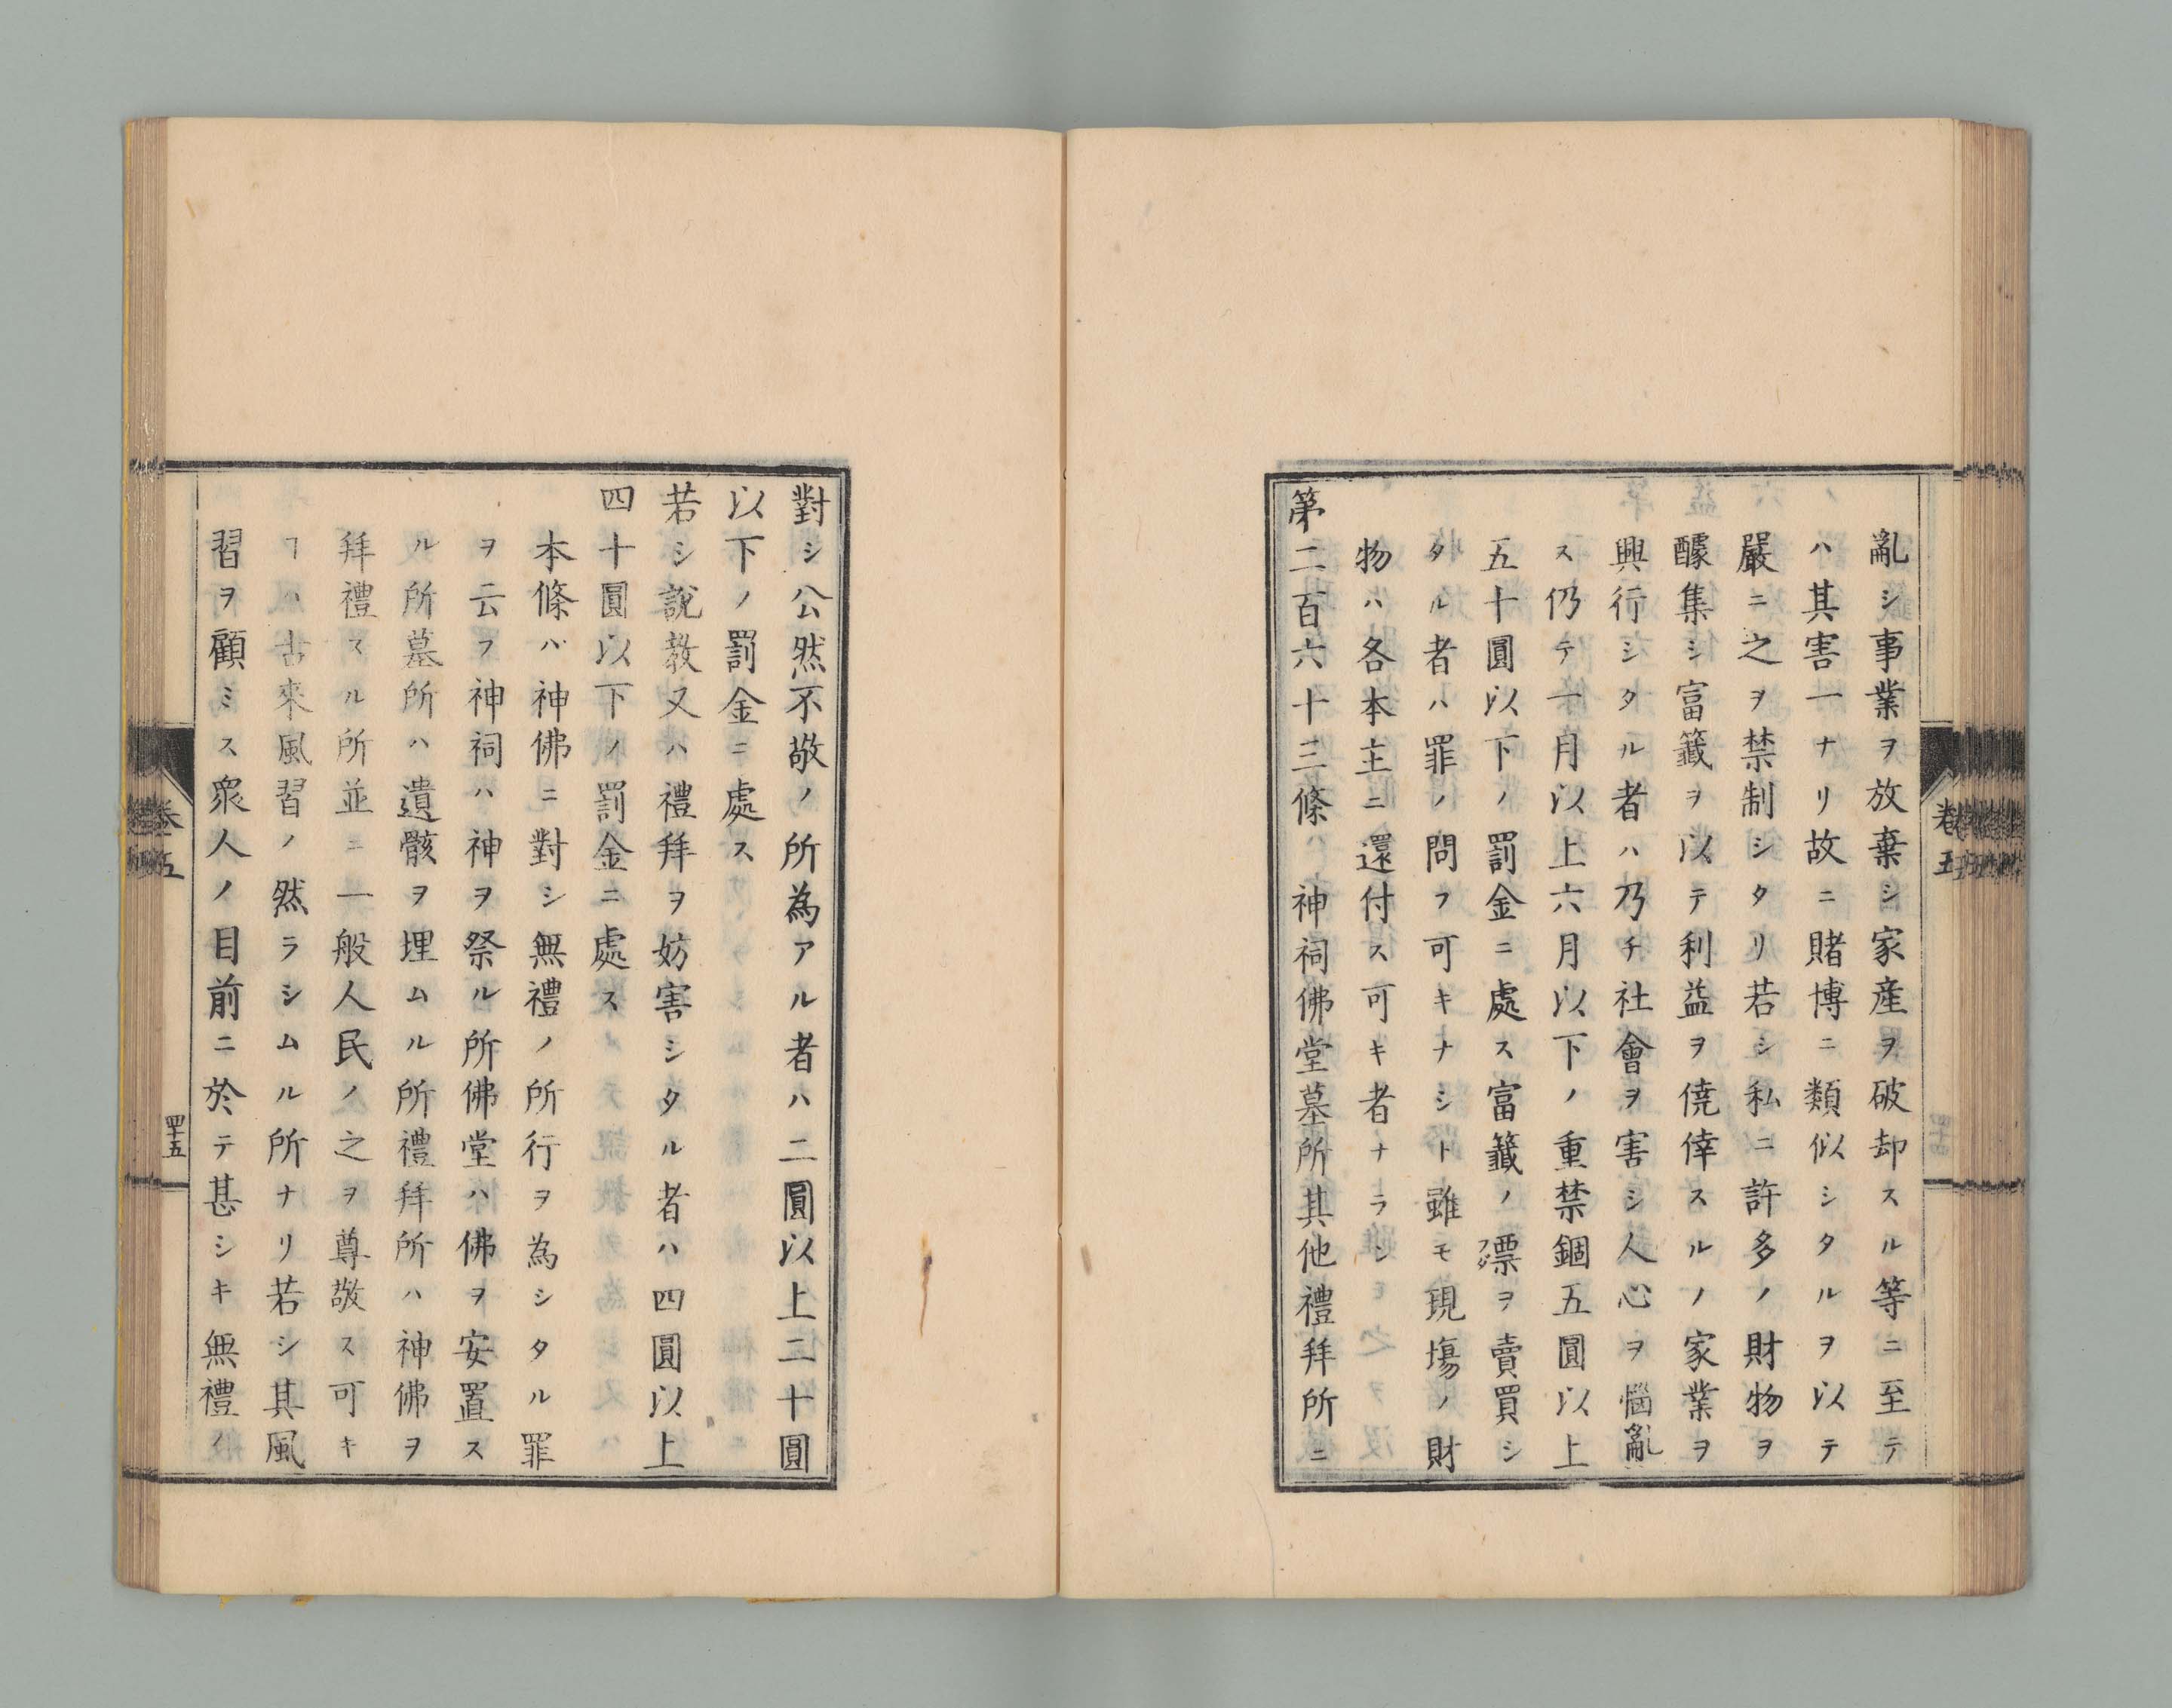 亂シ事業ヲ放棄シ家産ヲ破却スル等ニ至テ
ハ其害一ナリ故ニ賭博ニ類似シタルヲ以テ
嚴ニ之ヲ禁制シタリ若シ私ニ許多ノ財物ヲ
醵集シ富籤ヲ以テ利益ヲ僥倖スルノ家業ヲ
興行シタル者ハ乃チ社會ヲ害シ人心ヲ惱亂
ス仍テ一月以上六月以下ノ重禁錮五圓以上
五十圓以下ノ罰金ニ處ス富籤ノ票ヲ賣買シ
タル者ハ罪ノ問フ可キナシト雖モ現場ノ財
物ハ各本主ニ還付ス可キ者ナラン
第二百六十三條 神祠佛堂墓所其他禮拜所ニ
卷五
對シ公然不敬ノ所為アル者ハ二圓以上二十圓
以下ノ罰金ニ處ス
若シ說教又ハ禮拜ヲ妨害シタル者ハ四圓以上
四十圓以下ノ罰金ニ處ス
本條ハ神佛ニ對シ無禮ノ所行ヲ為シタル罪
ヲ云フ神祠ハ神ヲ祭ル所佛堂ハ佛ヲ安置ス
ル所墓所ハ遺骸ヲ埋ムル所禮拜所ハ神佛ヲ
拜禮スル所並ニ一般人民ノ之ヲ尊敬ス可キ
ヿハ古來風習ノ然ラシムル所ナリ若シ其風
習ヲ顧ミス衆人ノ目前ニ於テ甚シキ無禮ノ
卷五
四十五